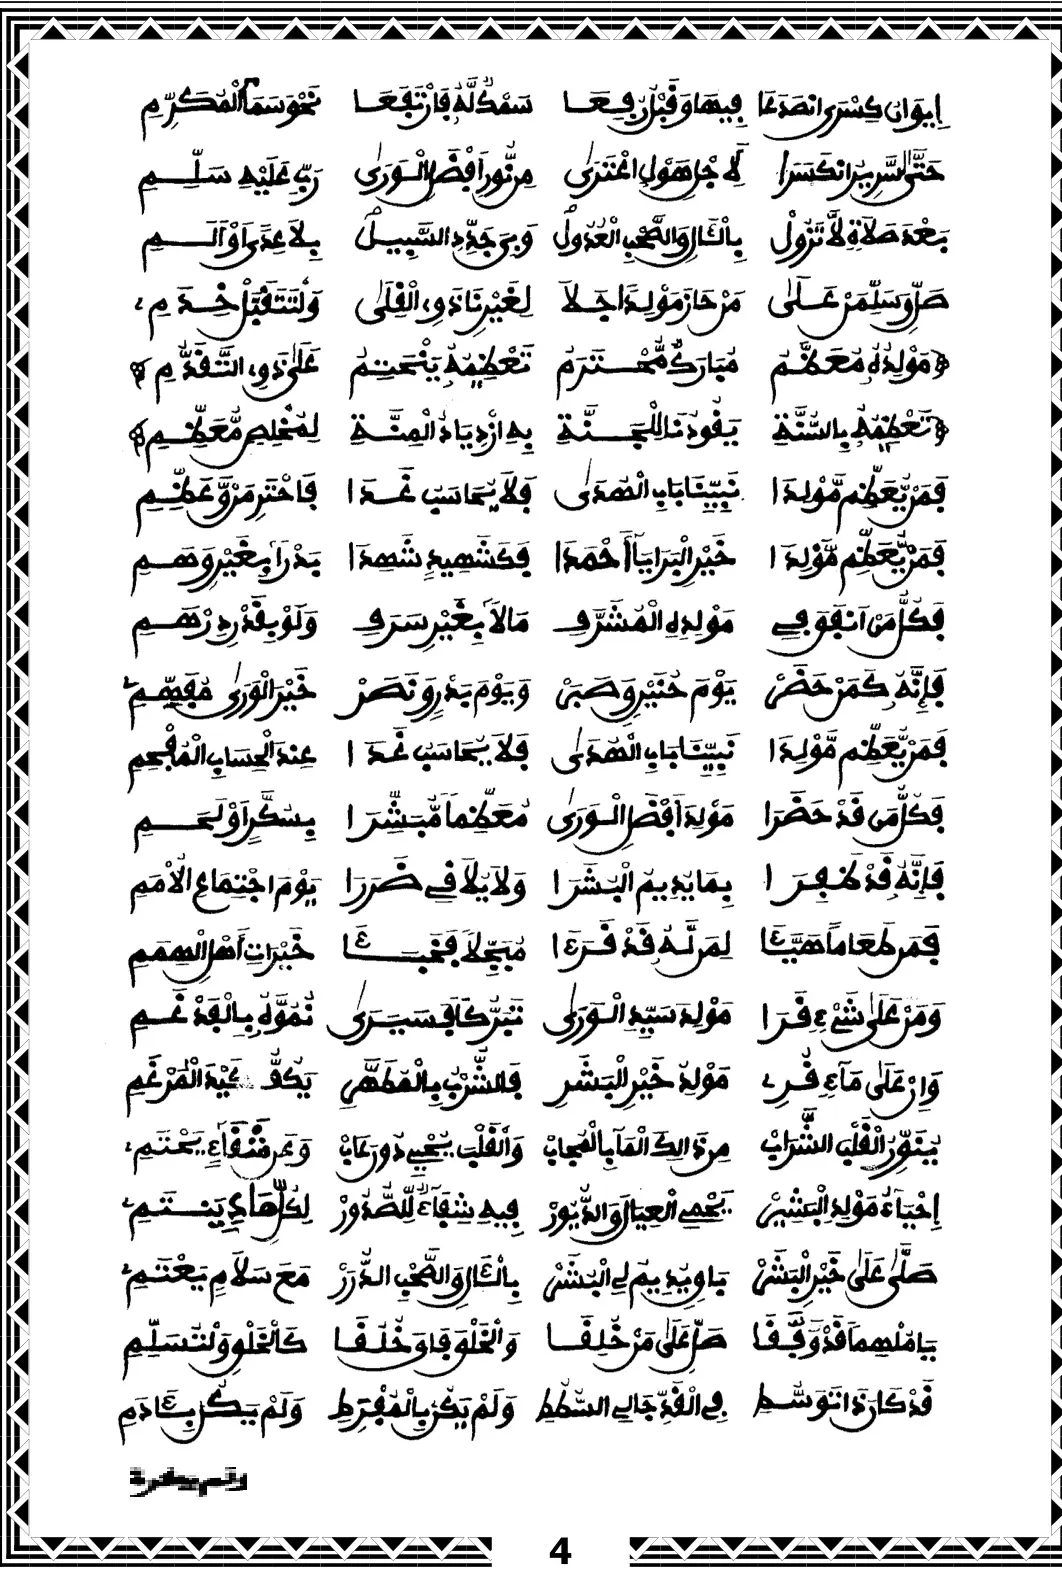 إِيوَانُ كِسْرَى انْصَدَعَا فِيهَا وَقَبْلُ رُفِعَا سَمْكٌ لَّهُ فَارْتَفَعَا نَحْوَ سَمَا الْمُكَرَّمِ
حَتَّى السَّرِيرُ انْكَسَرَا لِأَجْلِ هَوْلٍ اعْتَرَى مِن نُّورِ أَفْضَلِ الْوَرَى رَبِّ عَلَيْهِ سَلِّمِ
بَعْدَ صَلَاةٍ لَا تَزُولْ بِالْآلِ وَالصَّحْبِ الْعُدُولْ وَبِي جَدِّدِ السَّبِيلْ بِلَا عِدًى أَوْ أَلَمِ
صَلِّ وَسَلِّمَنْ عَلَى مَنْ حَازَ مَوْلِدًا جَلَا لِغَيْرِنَا ذَوِي الْقِلَى وَلْتَتَقَبَّلْ خِدَمِي
مَوْلِدُهُ مُعَظَّمُ مُبَارَكٌ مُّحْتَرَمُ تَعْظِيمُهُ يَنْحَتِمُ عَلَى ذَوِي التَّقَدُّمِ
تَعْظِيمُهُ بِالسُّنَّةِ يَقُودُنَا لِلْجَنَّةِ بِهِ ازْدِيَادُ الْمِنَّةِ لِمُخْلِصٍ مُّعَظِّمِ
فَمَن يُّعَظِّم مَّوْلِدَا نَبِيِّنَا بَابِ الْهُدَى فَلَا يُحَاسَبُ غَدَا فَاخْتَرْ مَن وَّعَظِّمِ
فَمَن يُّعَظِّم مَّوْلِدَا خَيْرِ الْبَرَايَا أَحْمَدَا فَكَشَهِيدٍ شَهِدَا بَدْرًا بِغَيْرِ وَهَمِ
فَكُلُّ مَنْ أَنْفَقَ فِي مَوْلِدِهِ الْمُشَرَّفِ مَالًا بِغَيْرِ سَرَفِ وَلَوْ بِقَدْرِ دِرْهَمِ
فَإِنَّهُ كَمَنْ حَضَرْ يَوْمَ حُنَيْنٍ وَصَبَرْ وَيَوْمَ بَدْرٍ وَنَصَرْ خَيْرَ الْوَرَى مُفَهِّمِي
فَمَن يُّعَظِّم مَّوْلِدَا نَبِيِّنَا بَابِ الْهُدَى فَلَا يُحَاسَبُ غَدَا عِنْدَ الْحِسَابِ الْمُفْحِمِ
فَكُلُّ مَن قَدْ حَضَرَا مَوْلِدَ أَفْضَلِ الْوَرَى مُعَظِّمًا مُّبَشَّرَا بِسُكَّرٍ أَوْ لَحَمِ
فَإِنَّهُ قَدْ ظَفِرَا بِمَا يُدِيمُ الْبَشَرَا وَلَا يُلَاقِي ضَرَرَا يَوْمَ اجْتِمَاعِ الْأُمَمِ
فَمَن طَعَامًا هَيَّأَ لِمَن لَّهُ قَدْ قَرَأَ مُبَجِّلًا خَيْرَاتِ أَهْلِ الْهِمَمِ
وَمَنْ عَلَى شَيْءٍ قَرَا مَوْلِدَ سَيِّدِ الْوَرَى تَبَرُّكًا فَسَيَرَى نُمُوَّهُ بِالْقَدْ عَمِ
وَإِنْ عَلَى مَاءٍ قُرِي مَوْلِدُ خَيْرِ الْبَشَرِ فَالشُّرْبُ بِالْمُطَهَّرِ يَكُفُّ كَيْدَ الْمُرْغَمِ
يُنَوِّرُ الْقَلْبَ الشَّرَابْ مِن ذَلِكَ الْمَاءِ الْعُجَابْ وَالْقَلْبُ يَحْيَى ذُو رِعَابْ وَعَن شَقَاءٍ يَحْتَمِي
إِحْيَاءُ مَوْلِدِ الْبَشِيرْ يَحْمِي الْعِيَالَ وَالدُّيُورْ فِيهِ شِفَاءٌ لِّلصُّدُورْ لِكُلِّ هَادٍ يَنْتَمِي
صَلَّى عَلَى خَيْرِ الْبَشَرْ بَاقٍ يُدِيمُ لِي الْبَشَرْ بِالْآلِ وَالصَّحْبِ الدُّرَرْ مَعَ سَلَامٍ يَعْتَمِي
يَا مُلْهِمًا قَدْ وَقَّفَا صَلِّ عَلَى مَنْ خُلِقَا وَالْخَلْقَ فَاقَ خُلُقَا كَالْخَلْقِ وَلْتُسَلِّمِ
قَدْ كَانَ ذَا تَوَسُّطِ فِي الْقَدِّ جَالِي السَّطَطِ وَلَمْ يَكُنْ بِالْمُفْرِطِ وَلَمْ يَكُنْ بِآدَمِ
4